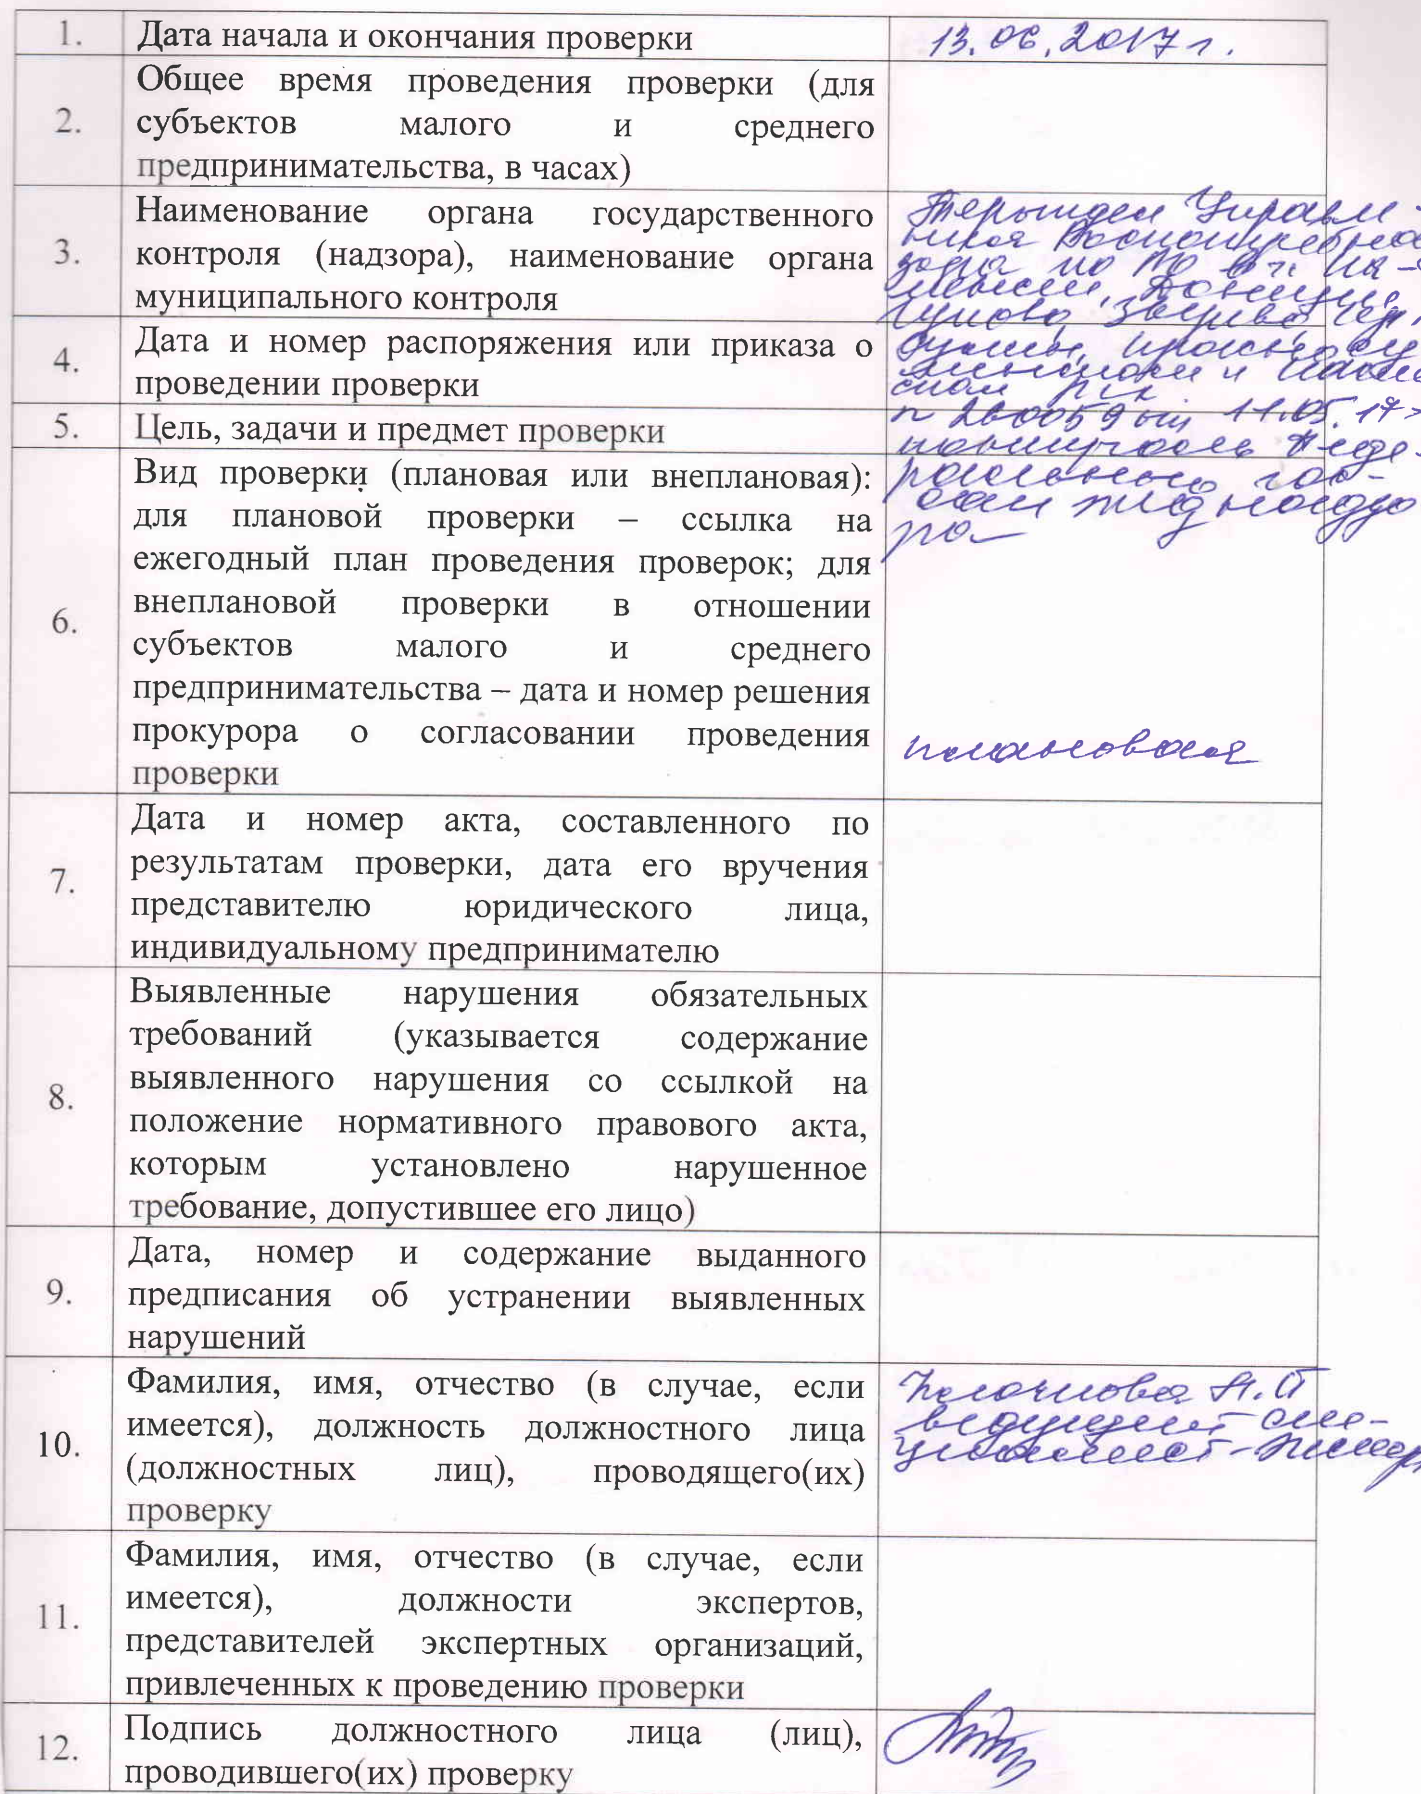 1. Дата начала и окончания проверки 13.06.2017 г.
2. Общее время проведения проверки (для
субъектов малого и среднего
предпринимательства, в часах)
3. Наименование органа государственного
контроля (надзора), наименование органа
муниципального контроля
Теротдел Управле-
ния Роспотребнад
зора по РО в г. Ка-
менске, Донецке,
Гуково, Зверево
4. Дата и номер распоряжения или приказа о
проведении проверки
№ 260059 от 11.05.17
5. Цель, задачи и предмет проверки
6. Вид проверки (плановая или внеплановая):
для плановой проверки – ссылка на
ежегодный план проведения проверок; для
внеплановой проверки в отношении
субъектов малого и среднего
предпринимательства – дата и номер решения
прокурора о согласовании проведения
проверки
плановая
7. Дата и номер акта, составленного по
результатам проверки, дата его вручения
представителю юридического лица,
индивидуальному предпринимателю
8. Выявленные нарушения обязательных
требований (указывается содержание
выявленного нарушения со ссылкой на
положение нормативного правового акта,
которым установлено нарушенное
требование, допустившее его лицо)
9. Дата, номер и содержание выданного
предписания об устранении выявленных
нарушений
10. Фамилия, имя, отчество (в случае, если
имеется), должность должностного лица
(должностных лиц), проводящего(их)
проверку
ведущий спе-
циалист-
11. Фамилия, имя, отчество (в случае, если
имеется), должности экспертов,
представителей экспертных организаций,
привлеченных к проведению проверки
12. Подпись должностного лица (лиц),
проводившего(их) проверку